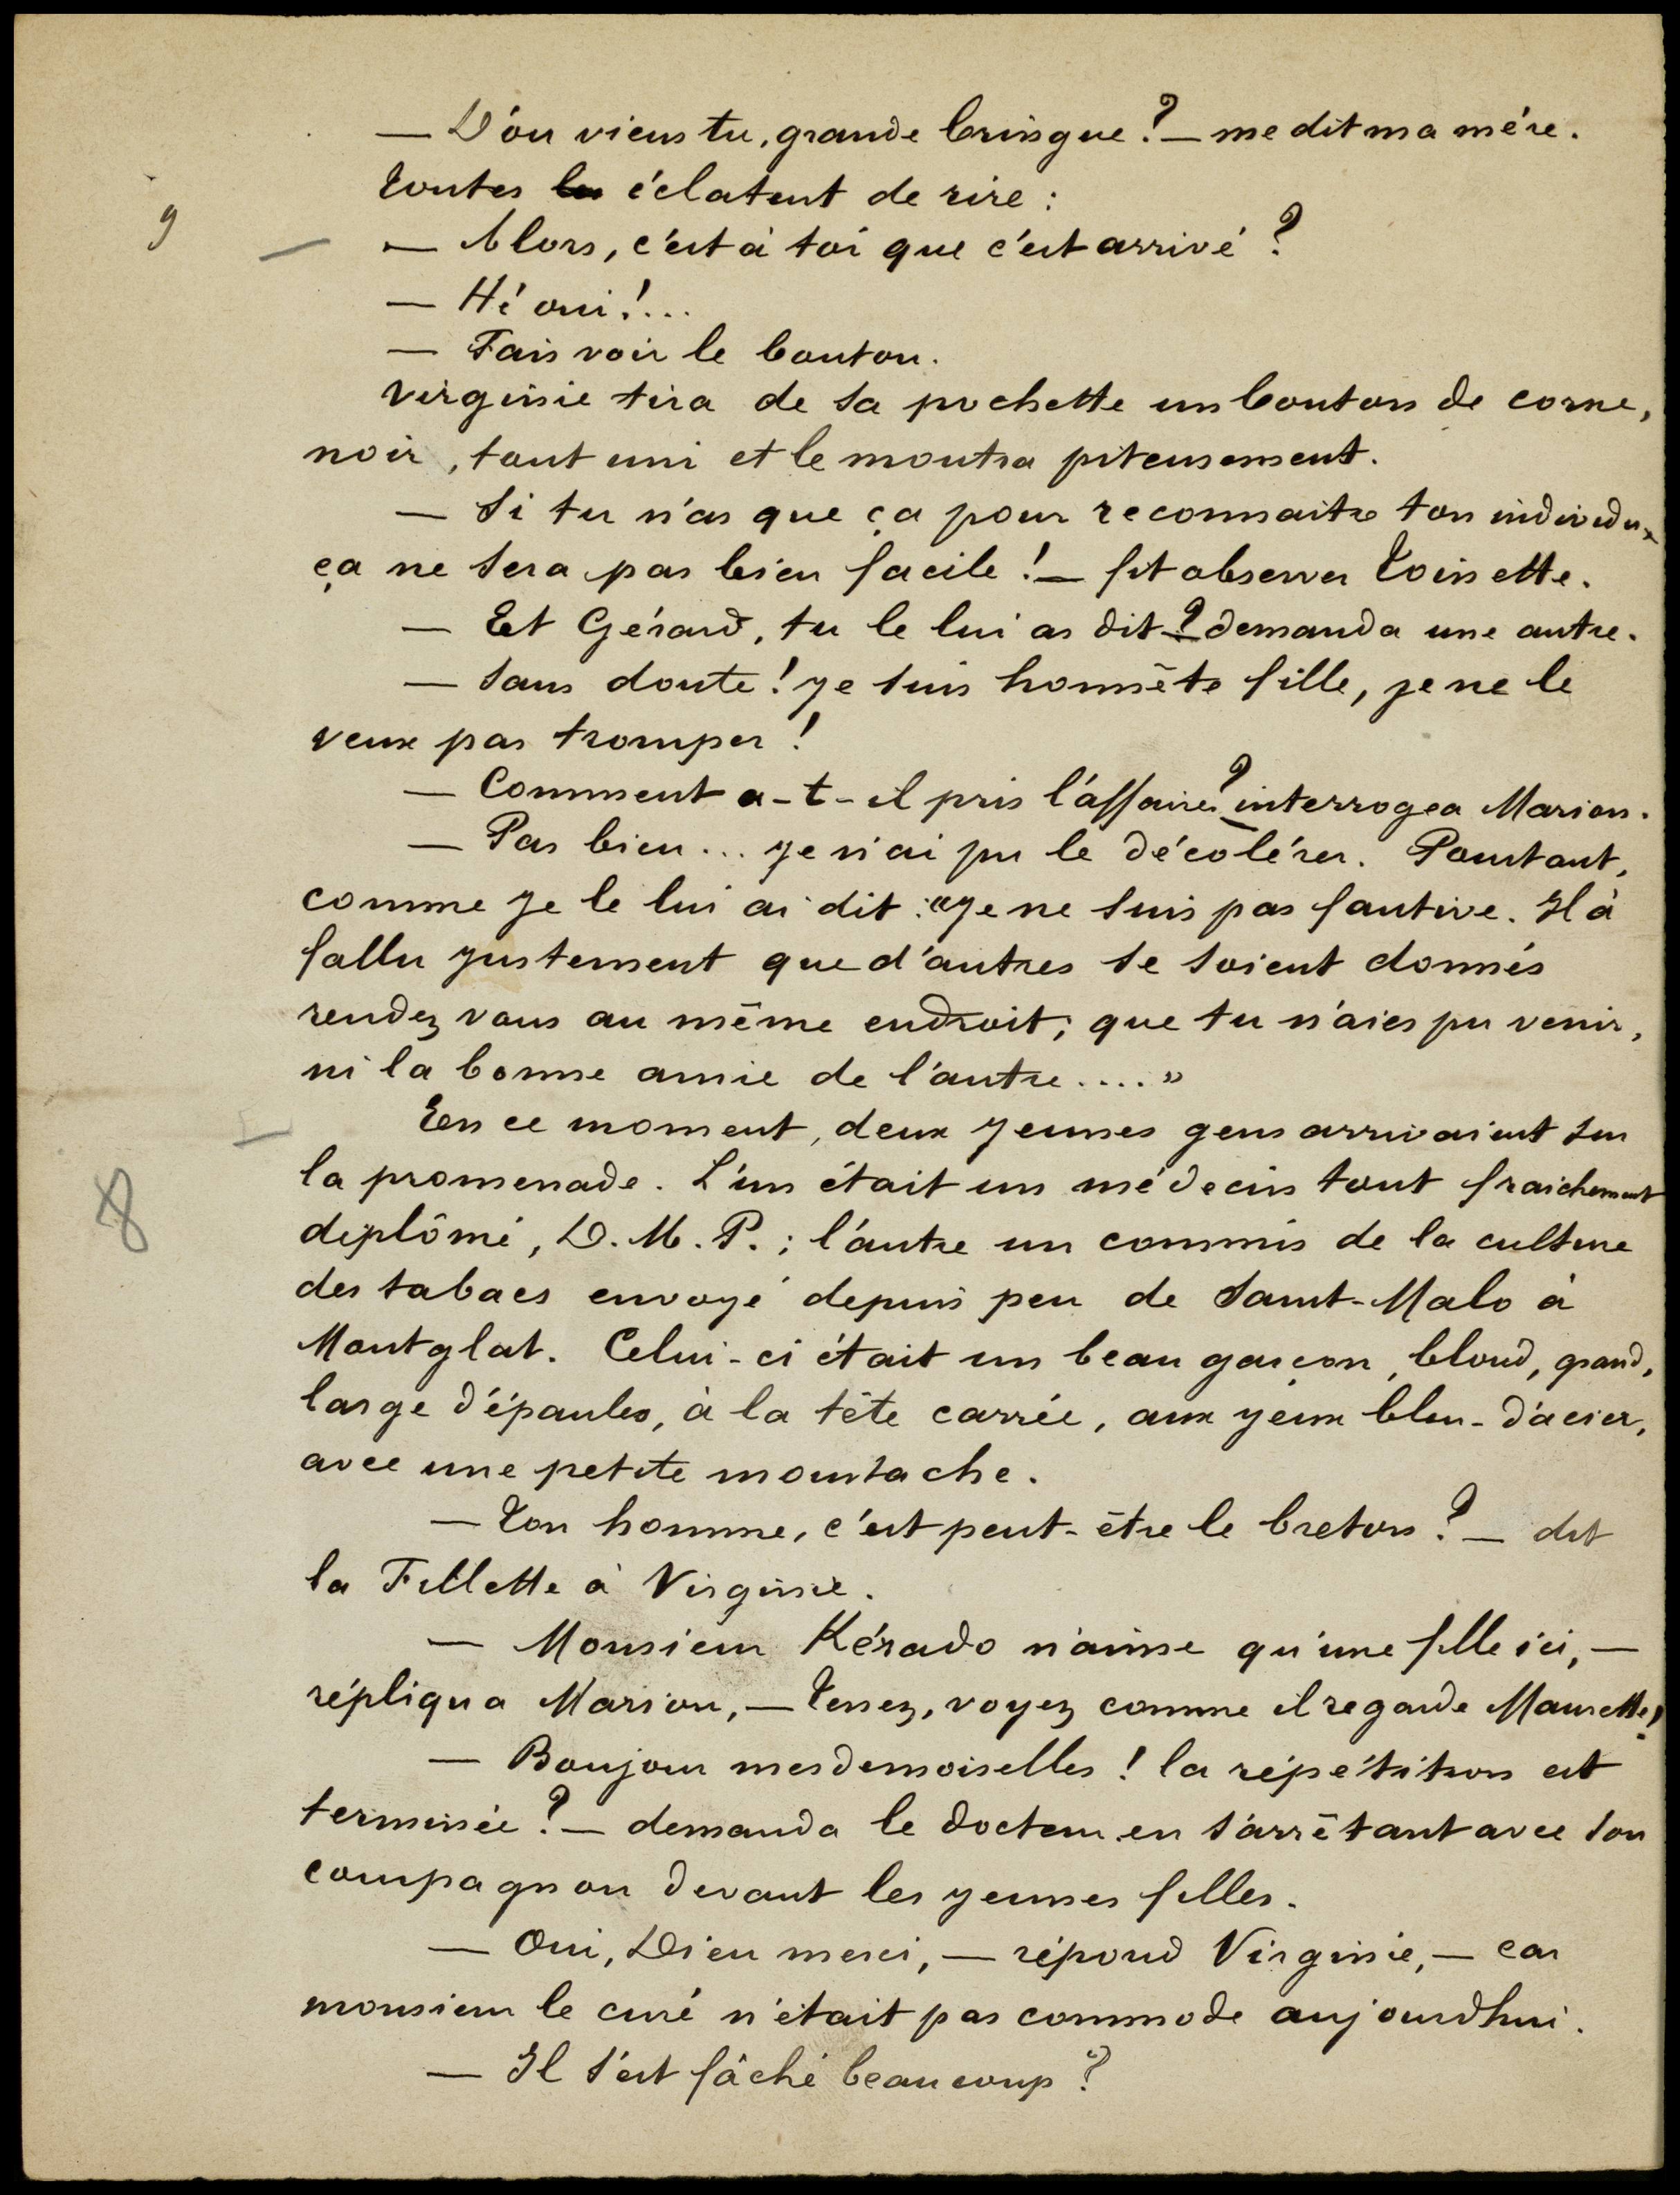 — D'ou viens tu, grande bringue ? — me dit ma mére.
Toutes les éclatent de rire :
9
— Alors, c'est à toi que c'est arrivé ?
— Hé oui !...
— Fais voir le bouton.
Virginie tira de sa pochette un bouton de corne,
noir, tout uni et le montra piteusement.
— Si tu n'as que ça pour reconnaitre ton individu,
ça ne sera pas bien facile ! — fit observer Toinette.
— Et Gérard, tu le lui as dit ? demanda une autre.
— Sans doute ! Je suis honnête fille, je ne le
veux pas tromper !
— Comment a-t-il pris l'affaire ? interrogea Marion.
— Pas bien... Je n'ai pu le décolérer. Pourtant,
comme je le lui ai dit : « Je ne suis pas fautive. Il à
fallu justement que d'autres se soient donnés
rendez vous au même endroit ; que tu n'aies pu venir,
ni la bonne amie de l'autre.... »
En ce moment, deux jeunes gens arrivaient sur
8
la promenade. L'un était un médecin tout fraichement
diplômé, D. M. P. ; l'autre un commis de la culture
des tabacs envoyé depuis peu de Saint-Malo à
Montglat. Celui-ci était un beau garçon, blond, grand,
large d'épaules, à la tête carrée, aux yeux bleu-d'acier,
avec une petite moustache.
— Ton homme, c'est peut-être le breton ? — dit
la Fillette à Virginie.
— Monsieur Kérado n'aime qu'une fille ici, —
répliqua Marion, — Tenez, voyez comme il regarde Maurette !
— Bonjour mesdemoiselles ! la répétition est
terminée ? — demanda le docteur en s'arrêtant avec son
compagnon devant les jeunes filles.
— Oui, Dieu merci, — répond Virginie, — car
monsieur le curé n'était pas commode aujourdhui.
— Il s'est fâché beaucoup ?